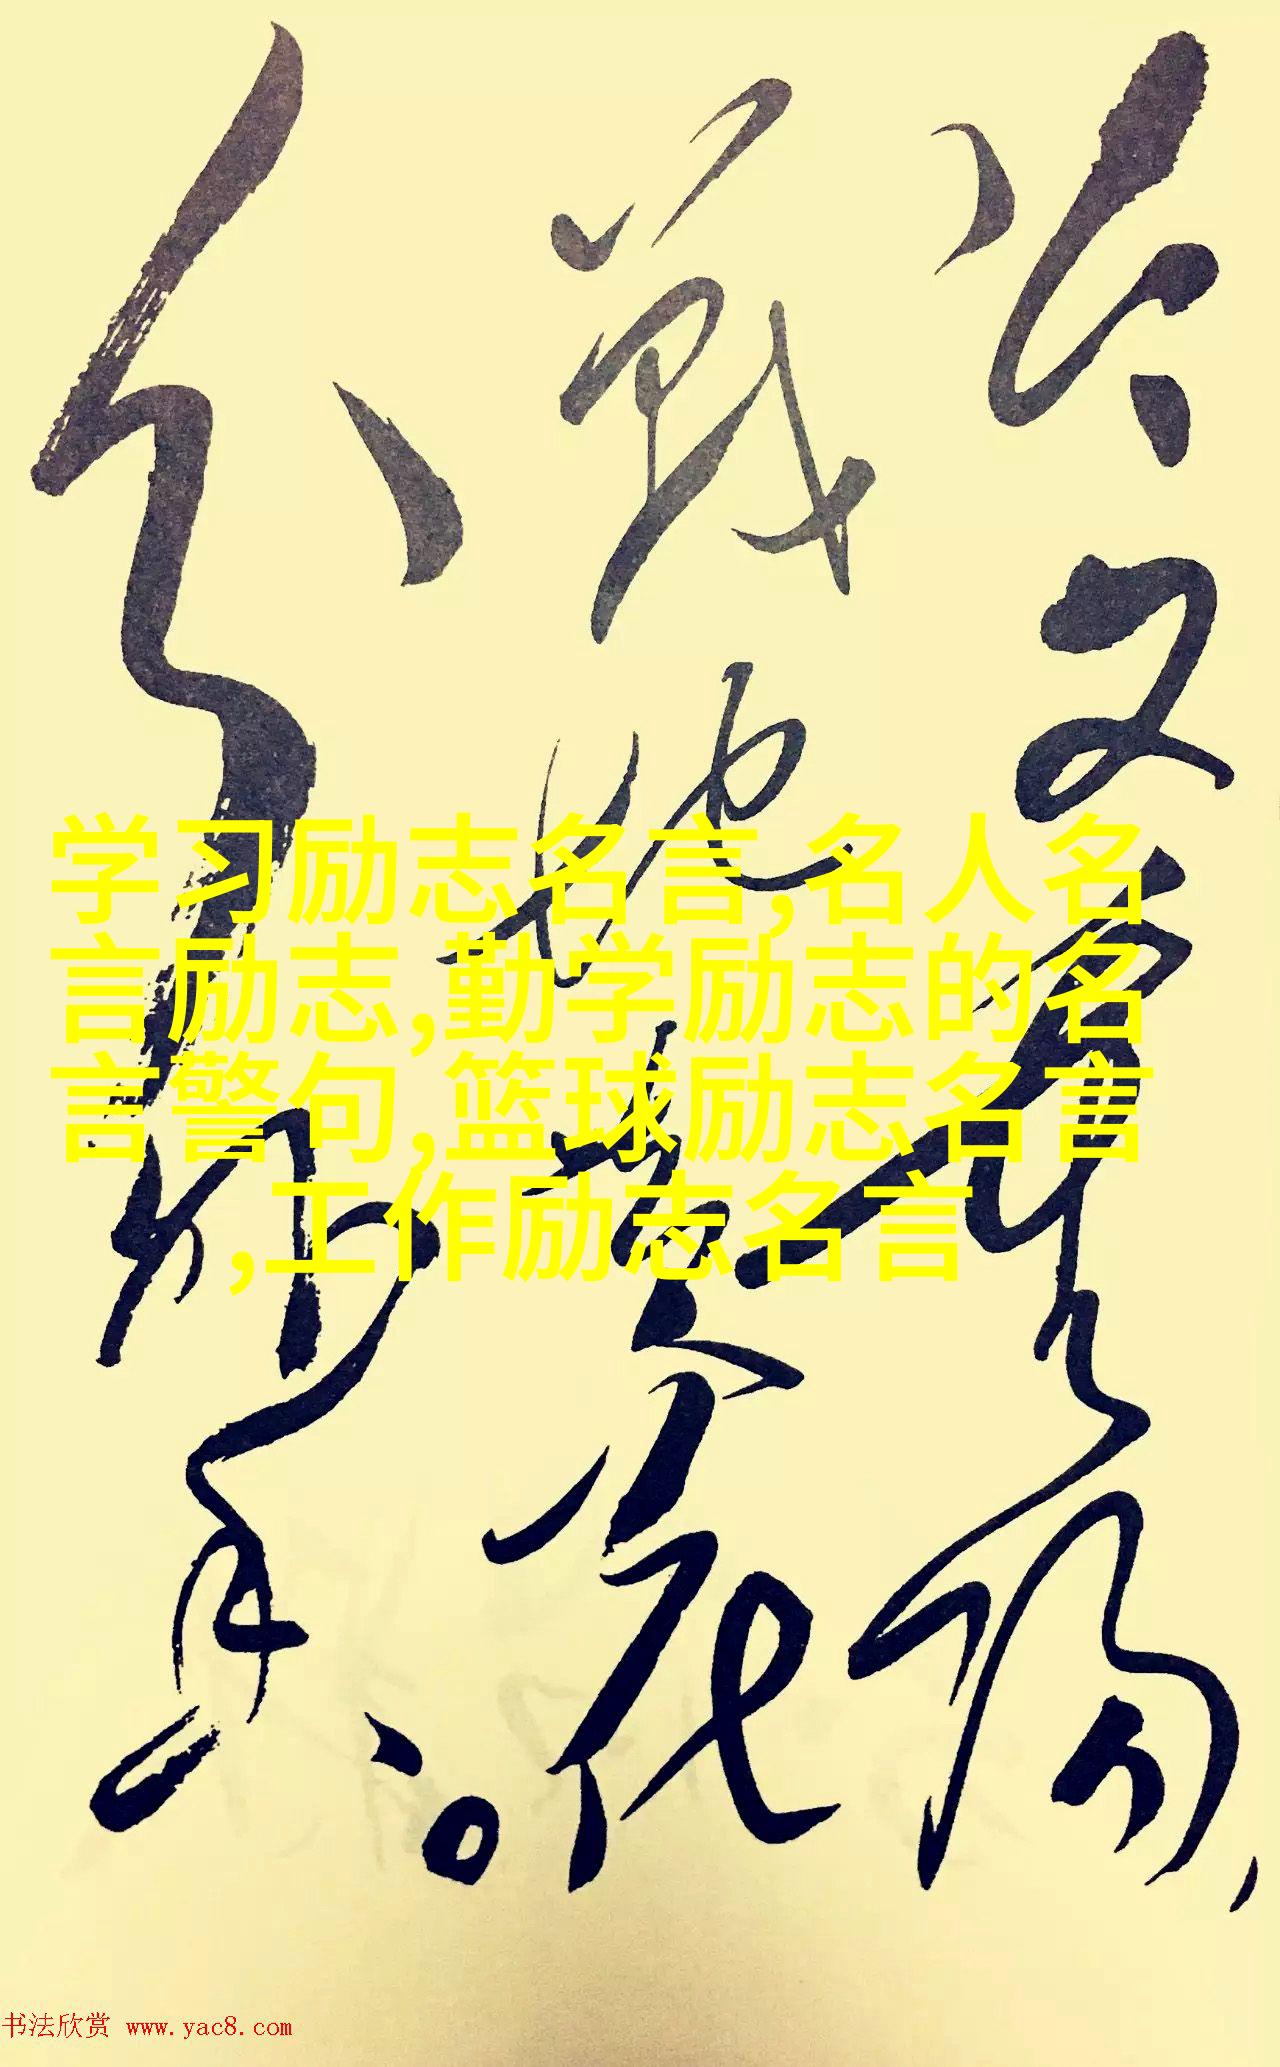 今又重陽，
戰地黄花
分外香。
学习励志名言,名人名
言励志,勤学励志的名
言警句,篮球励志名言
,工作励志名言
书法欣赏 www.yac8.com